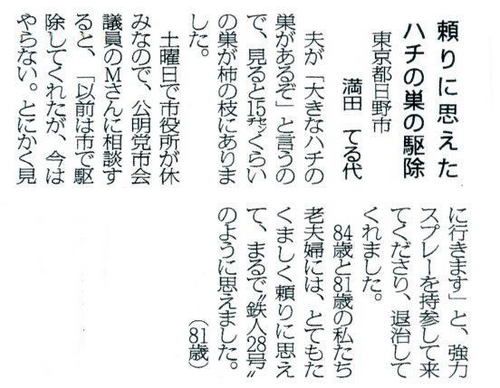 頼りに思えた
ハチの巣の駆除
東京都日野市
満田 てる代
夫が「大きなハチの
巣があるぞ」と言うの
で、見ると15㌢くらい
の巣が柿の枝にありま
した。
土曜日で市役所が休
みなので、公明党市会
議員のMさんに相談す
ると、「以前は市で駆
除してくれたが、今は
やらない。とにかく見
に行きます」と、強力
スプレーを持参して来
てくださり、退治して
くれました。
84歳と81歳の私たち
老夫婦には、とてもた
くましく頼りに思え
て、まるで〝鉄人28号〟
のように思えました。
(81歳)